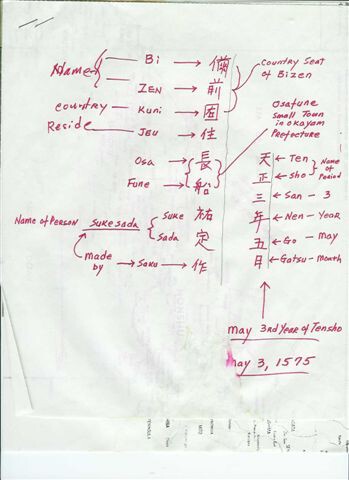 Name
Bi → 備
ZEN → 前
country — Kuni → 国
Reside — JBU → 住
Country Seat
of Bizen
Osa → 長
Fune → 船
Osafune
Small Town
in okayam
Prefecture
Name of Person Sukesada
Suke 祐
Sada 定
made
by → Saku → 作
天 ← Ten
正 ← Sho
Name
of
Period
三 ← San - 3
年 ← Nen - Year
五 ← Go - May
日 ← Gatsu - Month
may 3rd Year of Tensho
may 3, 1575